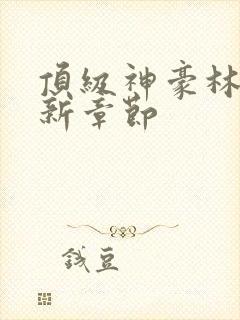 頂級神豪林
新章節
錢豆